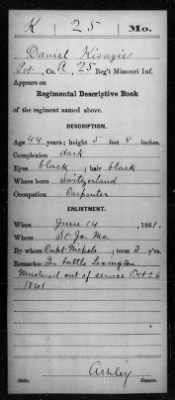 K | 25 | Mo.
Daniel
Pvt., Co. K, 25 Reg't Missouri Inf.
Appears on
Regimental Descriptive Book
of the regiment named above.
DESCRIPTION.
Age 44 years; height 5 feet 8 inches.
Complexion dark
Eyes black; hair black
Where born Switzerland
Occupation Carpenter
ENLISTMENT.
When June 14, 1861.
Where St. Jo. Mo.
By whom Capt Nichols; term 3 y'rs.
Remarks: In battle Lexington
Mustered out of service Oct 26
1861
Ashley
Copyist.